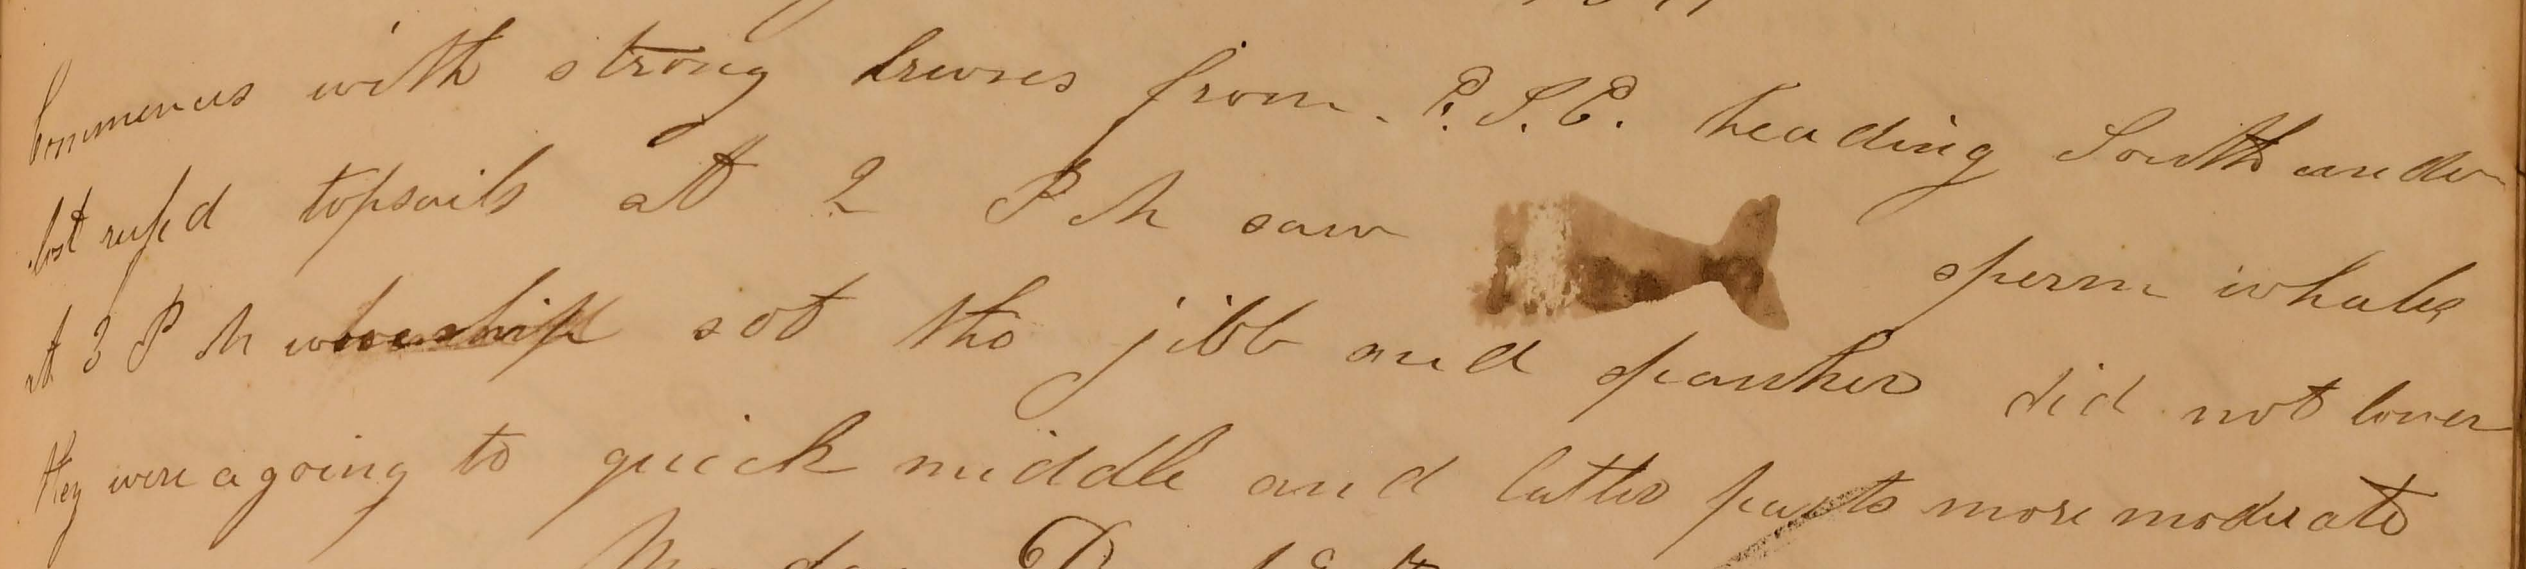 Commences with strong breuses from E. S. E. heading South under
lost reefed topsails at 2 P M saw sperm whales
at 3 P M wore ship set the jibb and spanker did not lower
they were a going to quick middle and latter parts more moderate